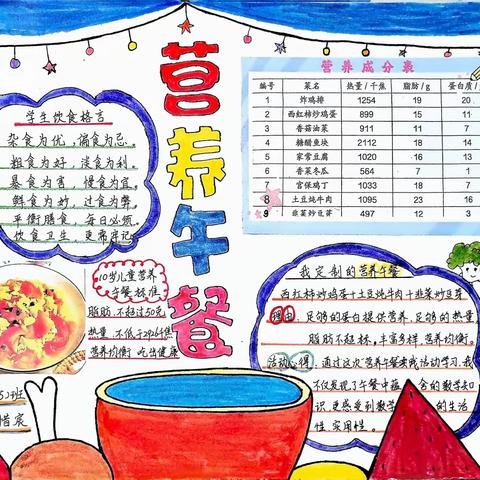 营养午餐
学生饮食格言
杂食为优，偏食为忌。
粗食为好，淡食为利。
暴食为害，慢食为宜。
鲜食为妙，过食为弊。
平衡膳食，每日必须。
饮食卫生，更常牢记。
营养成分表
编号 菜名 热量/千焦 脂肪/g 蛋白质/
1 炸鸡排 1254 19 20
2 西红柿炒鸡蛋 899 15 11
3 香菇油菜 911 11 7
4 糖醋鱼块 2112 18 14
5 家常豆腐 1020 16 13
6 香菜冬瓜 564 7 1
7 宫保鸡丁 1033 18 7
8 土豆炖牛肉 1095 23 16
9 韭菜炒豆芽 497 12 3
10岁儿童营养
午餐标准
脂肪：不超过50克
热量：不低于2926千焦
营养均衡 吃出健康
班
惜宸
我定制的营养午餐
西红柿炒鸡蛋+土豆炖牛肉+韭菜炒豆芽
理由：足够的蛋白提供营养，足够的热量
脂肪不超标，丰富多样，营养均衡。
活动心得：通过这次营养午餐实践活动学习，我
不仅发现了午餐中蕴含的数学知
识，更感受到数学的生活
性、实用性。